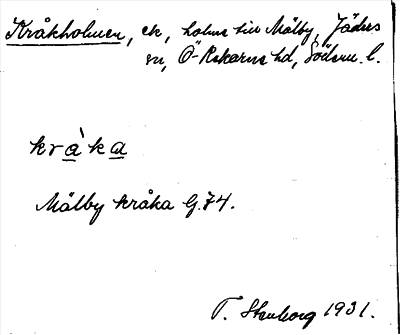 Kråkholmen, ek, holme till Mälby, Jäders
sn, Ö-Rekarne hd, Södm. l.
kràka
Mälby kråka G.74.
T. Stenborg 1931.